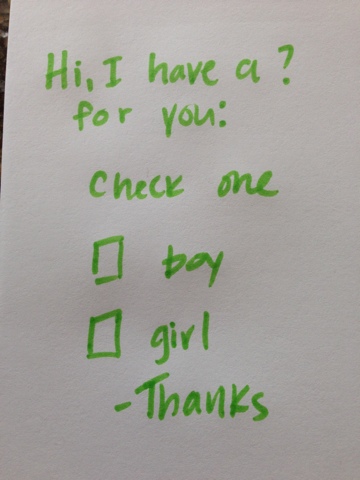 Hi, I have a ?
for you:
Check one
boy
girl
-Thanks